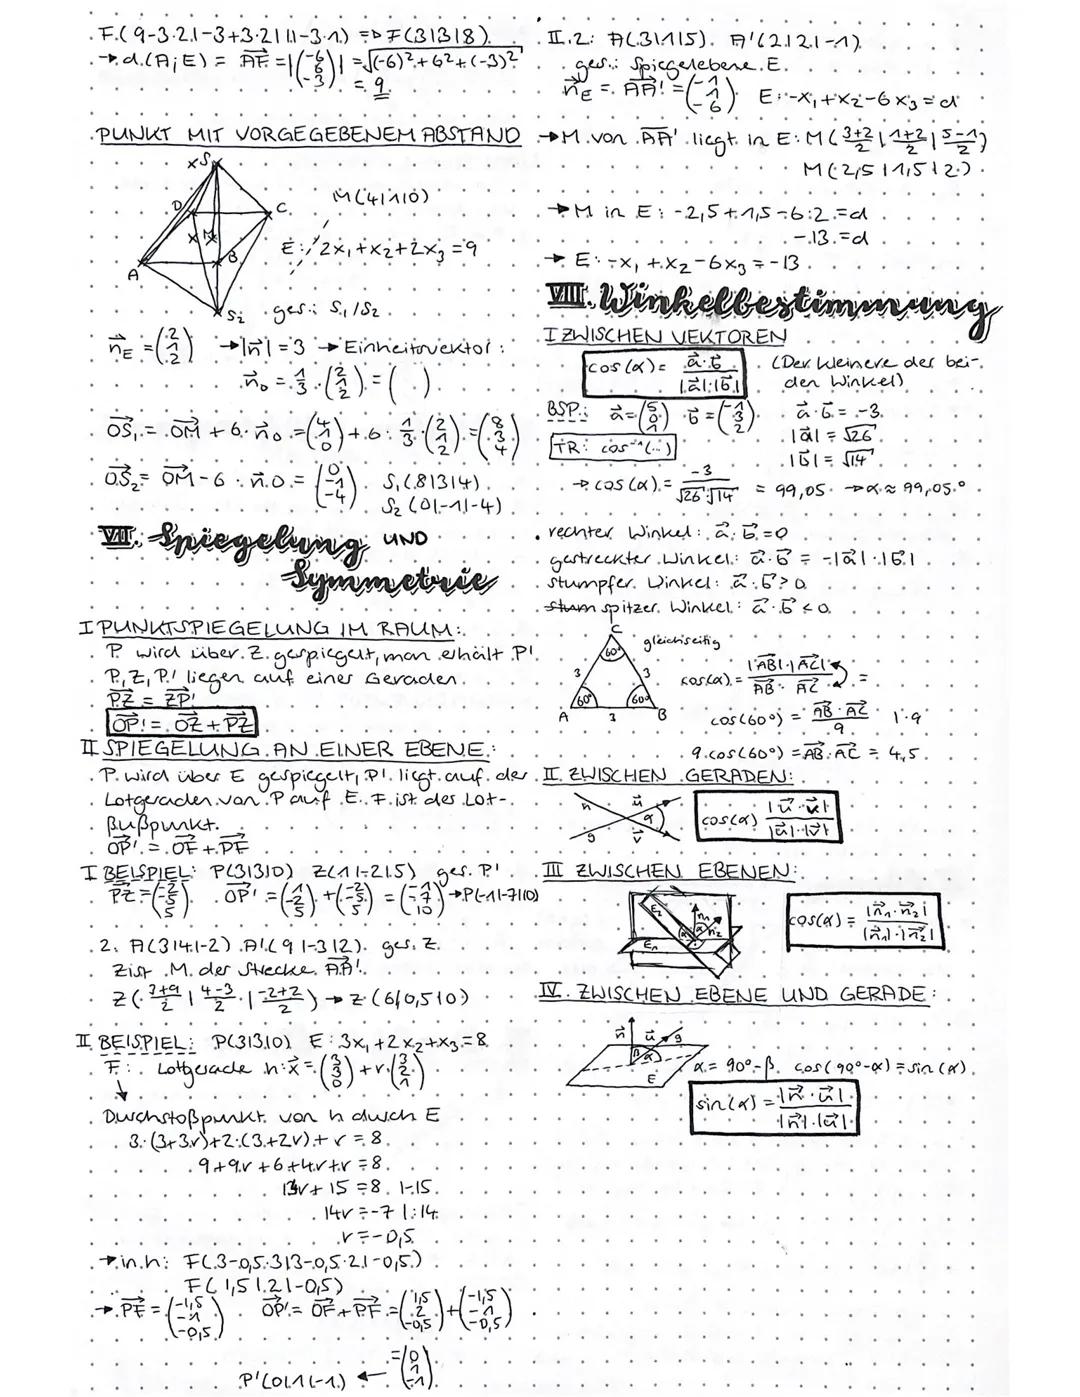 F(9-3·2|-3+3·2|11-3·1) => F(3|3|8)
→ d(A;E) = AF = |(-6 6 -3)| = √(-6)²+6²+(-3)²
= 9
PUNKT MIT VORGEGEBENEM ABSTAND
S₁
D
C
M
A
B
S₂
M(4|1|0)
E: 2x₁+x₂+2x₃=9
ges.: S₁/S₂
n⃗_E = (2 1 2) → |n⃗| = 3 → Einheitsvektor:
n⃗₀ = 1/3 · (2 1 2) = ( )
OS₁ = OM + 6·n⃗₀ = (4 1 0) + 6 · 1/3 · (2 1 2) = (8 3 4)
OS₂ = OM - 6 · n⃗₀ = (0 -1 -4) S₁(8|3|4)
S₂(0|-1|-4)
VII. Spiegelung UND
Symmetrie
I PUNKTSPIEGELUNG IM RAUM:
P wird über Z gespiegelt, man erhält P'
P, Z, P' liegen auf einer Geraden.
PZ = ZP'
OP' = OZ + PZ
II SPIEGELUNG AN EINER EBENE:
P wird über E gespiegelt, P' liegt auf der
Lotgeraden von P auf E. F ist des Lot-
ßußpunkt.
OP' = OF + PF
I BEISPIEL: P(3|3|0) Z(1|-2|5) ges. P'
PZ = (-2 -5 5) OP' = (1 -2 5) + (-2 -5 5) = (-1 -7 10) → P(-1|-7|10)
2. A(3|4|-2) A'(9|-3|2) ges. Z
Z ist M der Strecke AA'.
Z(3+9/2 | 4-3/2 | -2+2/2) → Z(6|0,5|0)
II BEISPIEL: P(3|3|0) E: 3x₁+2x₂+x₃=8
F: Lotgerade h: x⃗ = (3 3 0) + r·(3 2 1)
↓
Durchstoßpunkt von h durch E
3·(3+3r)+2·(3+2r)+r = 8
9+9r+6+4r+r = 8
14r+15 = 8 |-15
14r = -7 |:14
r = -0,5
→ in h: F(3-0,5·3|3-0,5·2|-0,5)
F(1,5|2|-0,5)
→ PF = (-1,5 -1 -0,5) OP' = OF + PF = (1,5 2 -0,5) + (-1,5 -1 -0,5)
= (0 1 -1)
P'(0|1|-1) ←
II.2: A(3|1|5) A'(2|2|-1)
ges.: Spiegelebene E
n⃗_E = AA' = (-1 1 -6) E: -x₁+x₂-6x₃ = d
→ M von AA' liegt in E: M(3+2/2 | 1+2/2 | 5-1/2)
M(2,5|1,5|2)
→ M in E: -2,5+1,5-6·2 = d
-13 = d
→ E: -x₁+x₂-6x₃ = -13
VIII. Winkelbestimmung
I ZWISCHEN VEKTOREN
cos(α) = a⃗·b⃗ / |a⃗|·|b⃗| (Der kleinere der bei-
den Winkel)
BSP.: a⃗ = (5 0 1) b⃗ = (-1 3 2) a⃗·b⃗ = -3
|a⃗| = √26
TR: cos⁻¹(...) |b⃗| = √14
→ cos(α) = -3 / √26·√14 = 99,05 → α ≈ 99,05°
• rechter Winkel: a⃗·b⃗ = 0
gestreckter Winkel: a⃗·b⃗ = -|a⃗|·|b⃗|
stumpfer Winkel: a⃗·b⃗ > 0
stum spitzer Winkel: a⃗·b⃗ < 0
C
gleichseitig
60°
3 3
60° 60°
A 3 B
cos(α) = |AB|·|AC| / AB·AC =
cos(60°) = AB·AC / 9 |·9
9·cos(60°) = AB·AC = 4,5
II ZWISCHEN GERADEN:
h u⃗ α g v⃗
cos(α) |u⃗·v⃗| / |u⃗|·|v⃗|
III ZWISCHEN EBENEN:
E₂ n⃗₁ α α n⃗₂ E₁
cos(α) = |n⃗₁·n⃗₂| / |n⃗₁|·|n⃗₂|
IV. ZWISCHEN EBENE UND GERADE:
n⃗ u⃗ g β α E
α = 90°-β cos(90°-α) = sin(α)
sin(α) = |n⃗·u⃗| / |n⃗|·|u⃗|